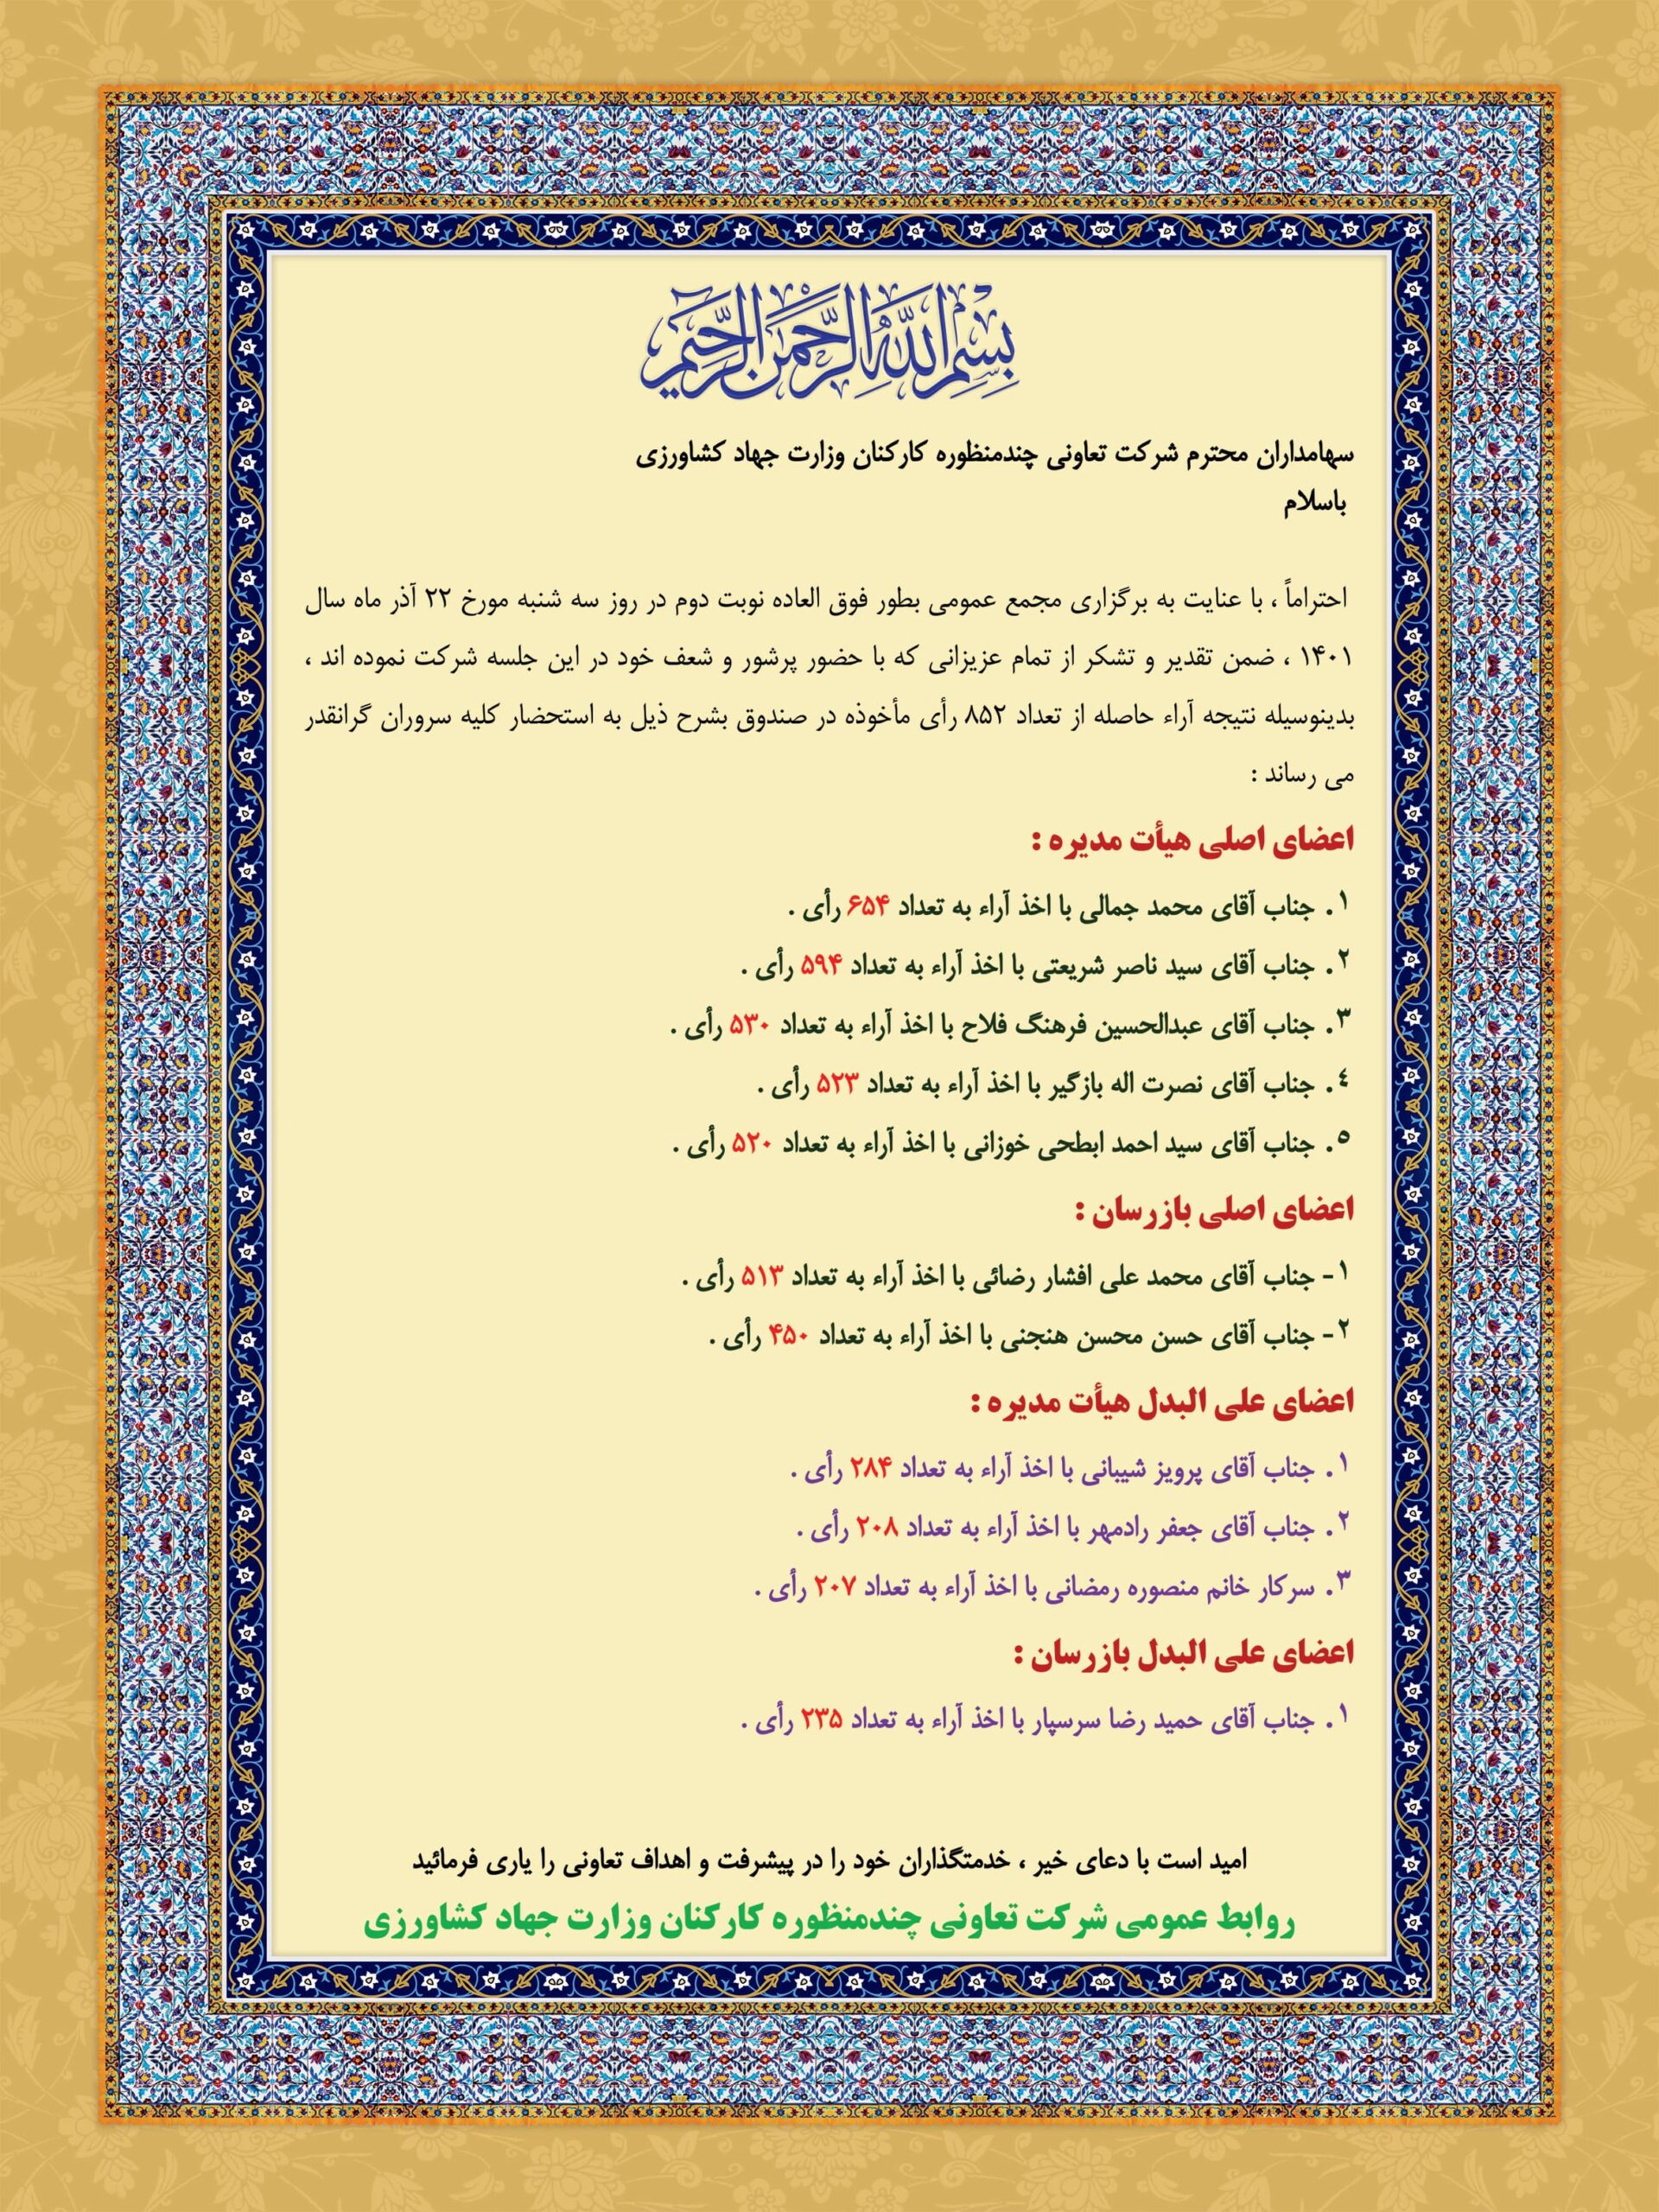 بسم الله الرحمن الرحیم
سهامداران محترم شرکت تعاونی چندمنظوره کارکنان وزارت جهاد کشاورزی
باسلام
احتراماً ، با عنایت به برگزاری مجمع عمومی بطور فوق العاده نوبت دوم در روز سه شنبه مورخ ۲۲ آذر ماه سال
۱۴۰۱ ، ضمن تقدیر و تشکر از تمام عزیزانی که با حضور پرشور و شعف خود در این جلسه شرکت نموده اند ،
بدینوسیله نتیجه آراء حاصله از تعداد ۸۵۲ رأی مأخوذه در صندوق بشرح ذیل به استحضار کلیه سروران گرانقدر
می رساند :
اعضای اصلی هیأت مدیره :
۱. جناب آقای محمد جمالی با اخذ آراء به تعداد ۶۵۴ رأی .
۲. جناب آقای سید ناصر شریعتی با اخذ آراء به تعداد ۵۹۴ رأی .
۳. جناب آقای عبدالحسین فرهنگ فلاح با اخذ آراء به تعداد ۵۳۰ رأی .
٤. جناب آقای نصرت اله بازگیر با اخذ آراء به تعداد ۵۲۳ رأی .
٥. جناب آقای سید احمد ابطحی خوزانی با اخذ آراء به تعداد ۵۲۰ رأی .
اعضای اصلی بازرسان :
۱- جناب آقای محمد علی افشار رضائی با اخذ آراء به تعداد ۵۱۳ رأی .
۲- جناب آقای حسن محسن هنجنی با اخذ آراء به تعداد ۴۵۰ رأی .
اعضای علی البدل هیأت مدیره :
۱. جناب آقای پرویز شیبانی با اخذ آراء به تعداد ۲۸۴ رأی .
۲. جناب آقای جعفر رادمهر با اخذ آراء به تعداد ۲۰۸ رأی .
۳. سرکار خانم منصوره رمضانی با اخذ آراء به تعداد ۲۰۷ رأی .
اعضای علی البدل بازرسان :
۱. جناب آقای حمید رضا سرسپار با اخذ آراء به تعداد ۲۳۵ رأی .
امید است با دعای خیر ، خدمتگذاران خود را در پیشرفت و اهداف تعاونی را یاری فرمائید
روابط عمومی شرکت تعاونی چندمنظوره کارکنان وزارت جهاد کشاورزی